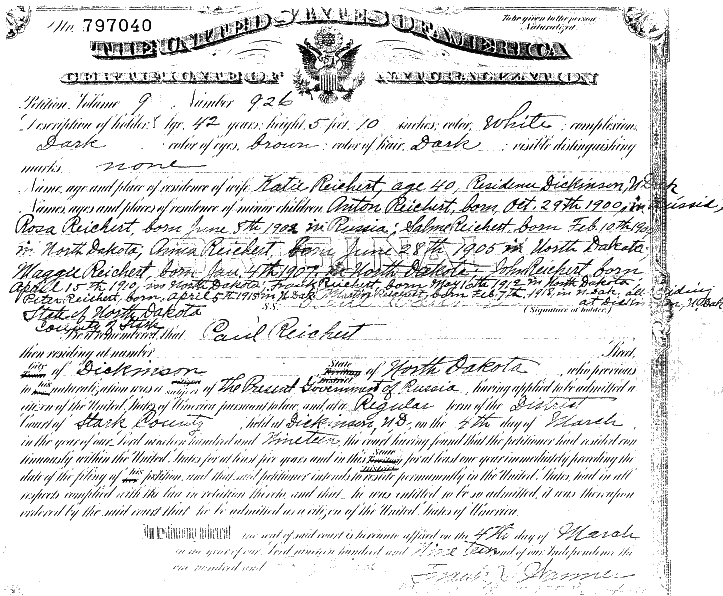 No. 797040
To be given to the person Naturalized.
THE UNITED STATES OF AMERICA
CERTIFICATE OF NATURALIZATION
Petition, Volume 9 Number 926
Description of holder: Age, 42 years; height, 5 feet, 10 inches; color, White; complexion,
Dark color of eyes, brown; color of hair, Dark; visible distinguishing
marks, none
Name, age and place of residence of wife Katie Reichert, age 40, Residence Dickinson, N Dak
Names, ages and places of residence of minor children Anton Reichert, born, Oct. 29th 1900, in Russia,
Rosa Reichert, born June 5th 1902 in Russia; Reichert, born Feb 10th
in North Dakota, Annia Reichert born June 28th 1905 in North Dakota,
Maggie Reichert, born Jan. 4th 1907, in North Dakota, John Reichert, born
April 15th 1910, in North Dakota, Frank Reichert, born May 16th 1912 in North Dakota,
Peter Reichert, born, April 5th 1915 in N. Dak Reichert, born Feb 7th, 1918, in N. Dak, all residing
at Dickinson, N. Dak
State of North Dakota
County of Stark
S.S.
(Signature of holder.)
Be it remembered, that Paul Reichert
then residing at number Street,
City of Dickinson State of North Dakota, who previous
to his naturalization was a subject of The Present Government of Russia, having applied to be admitted a
citizen of the United States of America pursuant to law, and at a Regular term of the District
Court of Stark County, held at Dickinson, N.D. on the 5th day of March
in the year of our Lord nineteen hundred and Nineteen, the court having found that the petitioner had resided con
tinuously within the United States for at least five years and in this State for at least one year immediately preceding the
date of the filing of his petition, and that said petitioner intends to reside permanently in the United States, had in all
respects complied with the law in relation thereto, and that he was entitled to be so admitted, it was thereupon
ordered by the said court that he be admitted as a citizen of the United States of America.
In testimony whereof the seal of said court is hereunto affixed on the 4th day of March
in the year of our Lord nineteen hundred and Nineteen and of our Independence the
one hundred and
Frank